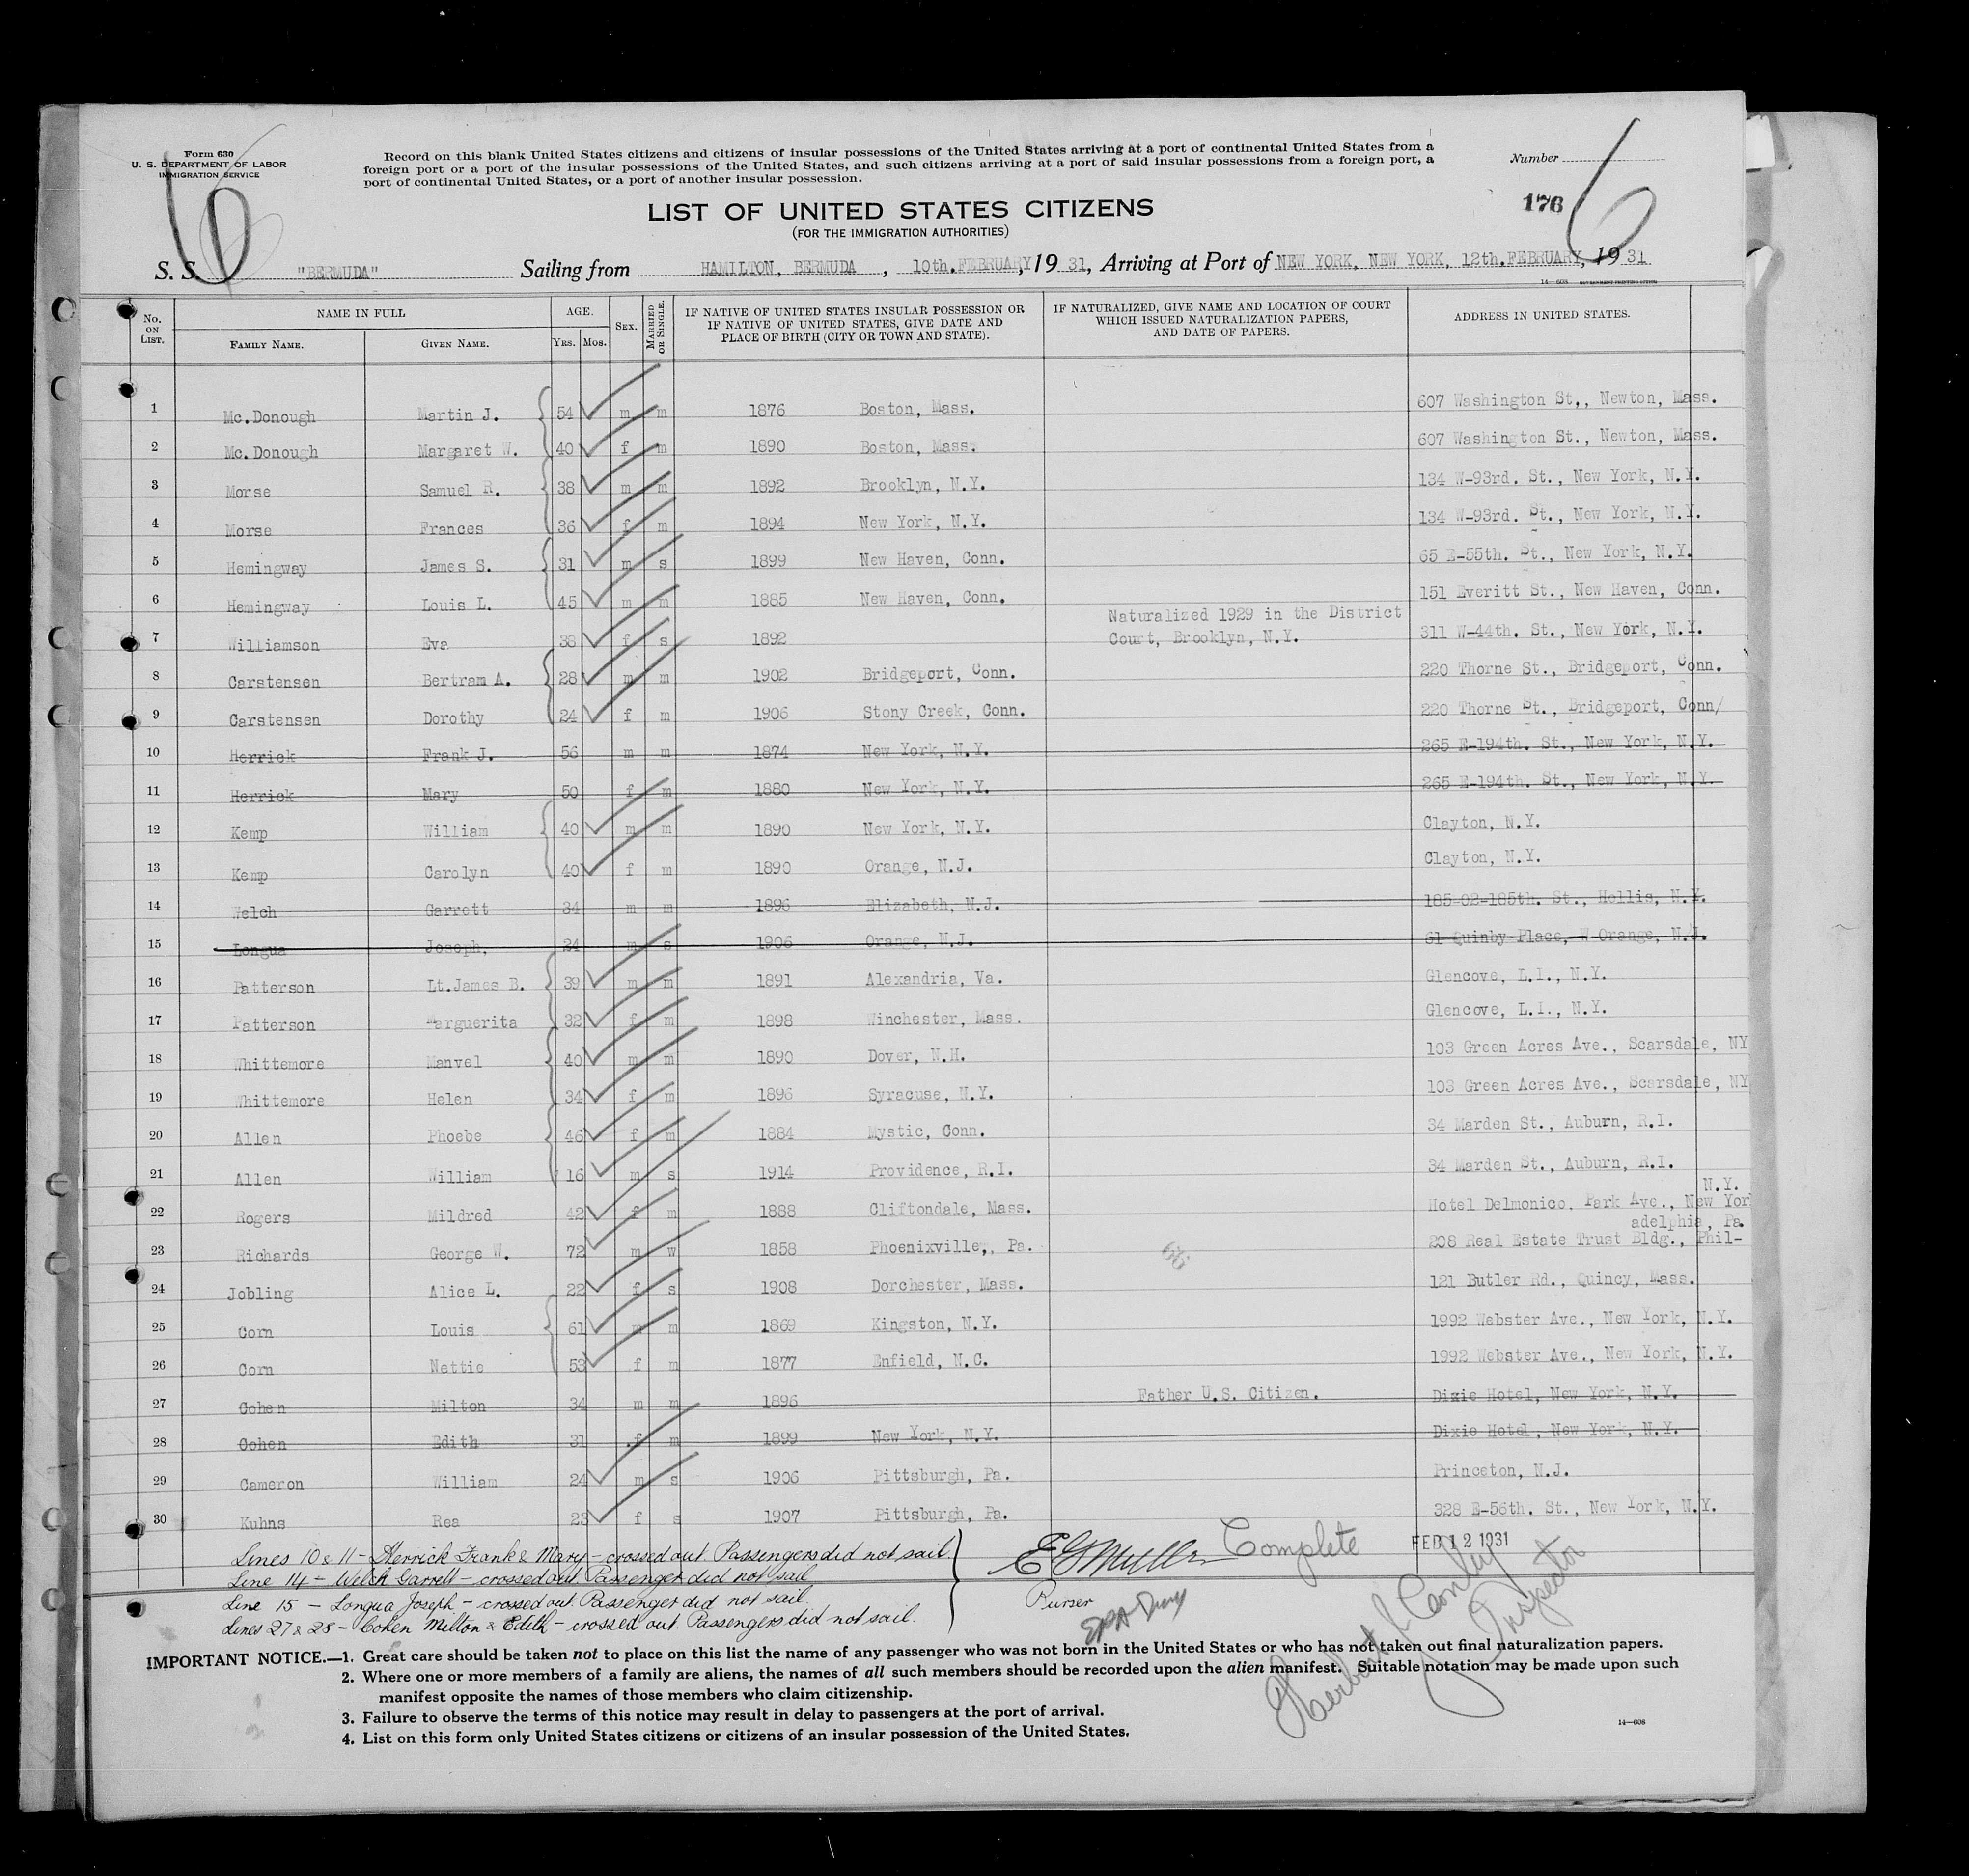 Form 630
U. S. DEPARTMENT OF LABOR
IMMIGRATION SERVICE
6
Record on this blank United States citizens and citizens of insular possessions of the United States arriving at a port of continental United States from a
foreign port or a port of the insular possessions of the United States, and such citizens arriving at a port of said insular possessions from a foreign port, a
port of continental United States, or a port of another insular possession.
Number
176
6
LIST OF UNITED STATES CITIZENS
(FOR THE IMMIGRATION AUTHORITIES)
S. S. "BERMUDA" Sailing from HAMILTON, BERMUDA, 10th. FEBRUARY, 1931, Arriving at Port of NEW YORK, NEW YORK, 12th. FEBRUARY, 1931
14—608 GOVERNMENT PRINTING OFFICE
No. ON LIST. NAME IN FULL FAMILY NAME. GIVEN NAME. AGE. YRS. MOS. SEX. MARRIED OR SINGLE. IF NATIVE OF UNITED STATES INSULAR POSSESSION OR IF NATIVE OF UNITED STATES, GIVE DATE AND PLACE OF BIRTH (CITY OR TOWN AND STATE). IF NATURALIZED, GIVE NAME AND LOCATION OF COURT WHICH ISSUED NATURALIZATION PAPERS, AND DATE OF PAPERS. ADDRESS IN UNITED STATES.
1 Mc.Donough Martin J. 54 m m 1876 Boston, Mass. 607 Washington St., Newton, Mass.
2 Mc.Donough Margaret W. 40 f m 1890 Boston, Mass. 607 Washington St., Newton, Mass.
3 Morse Samuel R. 38 m m 1892 Brooklyn, N.Y. 134 W-93rd. St., New York, N.Y.
4 Morse Frances 36 f m 1894 New York, N.Y. 134 W-93rd. St., New York, N.Y.
5 Hemingway James S. 31 m s 1899 New Haven, Conn. 65 E-55th. St., New York, N.Y.
6 Hemingway Louis L. 45 m m 1885 New Haven, Conn. 151 Everitt St., New Haven, Conn.
7 Williamson Eva 38 f s 1892 Naturalized 1929 in the District Court, Brooklyn, N.Y. 311 W-44th. St., New York, N.Y.
8 Carstensen Bertram A. 28 m m 1902 Bridgeport, Conn. 220 Thorne St., Bridgeport, Conn.
9 Carstensen Dorothy 24 f m 1906 Stony Creek, Conn. 220 Thorne St., Bridgeport, Conn/
10 Herrick Frank J. 56 m m 1874 New York, N.Y. 265 E-194th. St., New York, N.Y.
11 Herrick Mary 50 f m 1880 New York, N.Y. 265 E-194th. St., New York, N.Y.
12 Kemp William 40 m m 1890 New York, N.Y. Clayton, N.Y.
13 Kemp Carolyn 40 f m 1890 Orange, N.J. Clayton, N.Y.
14 Welch Garrett 34 m m 1896 Elizabeth, N.J. 185-02-185th. St., Hollis, N.Y.
15 Longua Joseph. 24 m s 1906 Orange, N.J. 61 Quinby Place, W Orange, N.J.
16 Patterson Lt.James B. 39 m m 1891 Alexandria, Va. Glencove, L.I., N.Y.
17 Patterson Marguerita 32 f m 1898 Winchester, Mass. Glencove, L.I., N.Y.
18 Whittemore Manvel 40 m m 1890 Dover, N.H. 103 Green Acres Ave., Scarsdale, NY
19 Whittemore Helen 34 f m 1896 Syracuse, N.Y. 103 Green Acres Ave., Scarsdale, NY
20 Allen Phoebe 46 f m 1884 Mystic, Conn. 34 Marden St., Auburn, R.I.
21 Allen William 16 m s 1914 Providence, R.I. 34 Marden St., Auburn, R.I.
22 Rogers Mildred 42 f m 1888 Cliftondale, Mass. Hotel Delmonico, Park Ave., New York N.Y.
23 Richards George W. 72 m w 1858 Phoenixville, Pa. 208 Real Estate Trust Bldg., Phil-adelphia, Pa.
24 Jobling Alice L. 22 f s 1908 Dorchester, Mass. 121 Butler Rd., Quincy, Mass.
25 Corn Louis 61 m m 1869 Kingston, N.Y. 1992 Webster Ave., New York, N.Y.
26 Corn Nettie 53 f m 1877 Enfield, N.C. 1992 Webster Ave., New York, N.Y.
27 Cohen Milton 34 m m 1896 Father U.S. Citizen. Dixie Hotel, New York, N.Y.
28 Cohen Edith 31 f m 1899 New York, N.Y. Dixie Hotel, New York, N.Y.
29 Cameron William 24 m s 1906 Pittsburgh, Pa. Princeton, N.J.
30 Kuhns Rea 23 f s 1907 Pittsburgh, Pa. 328 E-56th. St., New York, N.Y.
Lines 10 & 11 – Herrick Frank & Mary – crossed out. Passengers did not sail.
Line 14 – Welch Garrett – crossed out. Passenger did not sail
Line 15 – Longua Joseph – crossed out. Passenger did not sail.
Lines 27 & 28 – Cohen Milton & Edith – crossed out. Passengers did not sail.
E G Muller
Purser
Complete
FEB 12 1931
Inspector
IMPORTANT NOTICE.—1. Great care should be taken not to place on this list the name of any passenger who was not born in the United States or who has not taken out final naturalization papers.
2. Where one or more members of a family are aliens, the names of all such members should be recorded upon the alien manifest. Suitable notation may be made upon such
manifest opposite the names of those members who claim citizenship.
3. Failure to observe the terms of this notice may result in delay to passengers at the port of arrival.
4. List on this form only United States citizens or citizens of an insular possession of the United States.
14—608